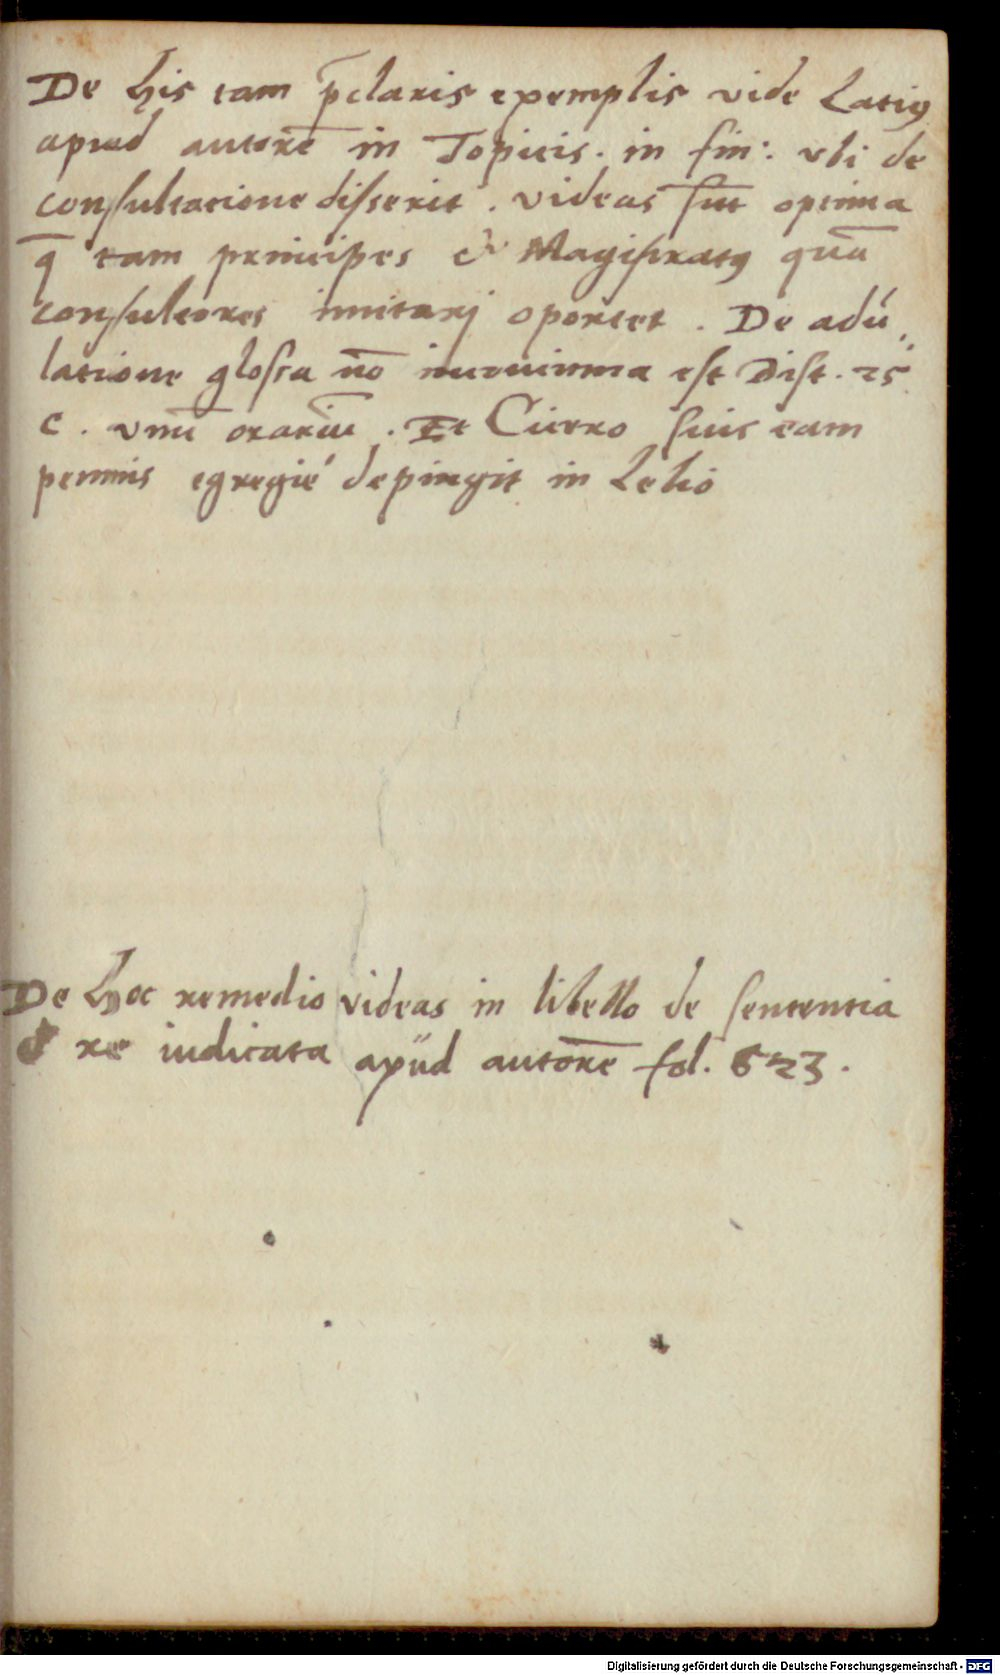 De his tam p̄claris exemplis vide Latiꝰ
apud autorē in Topicis. in fin: vbi de
consultatione disserit. videas sūt optima
q̄ tam principes & Magistratꝰ quā
consultores imitarj oportet. De adú„
latione glossa nō est Dist. 25
c. vnū orariū. Et Cicero suis eam
pennis egregié depingit in Lelio
De hoc remedio videas in libello de sententia
& re iudicata apüd autorē fol. 623.
Digitalisierung gefördert durch die Deutsche Forschungsgemeinschaft - DFG